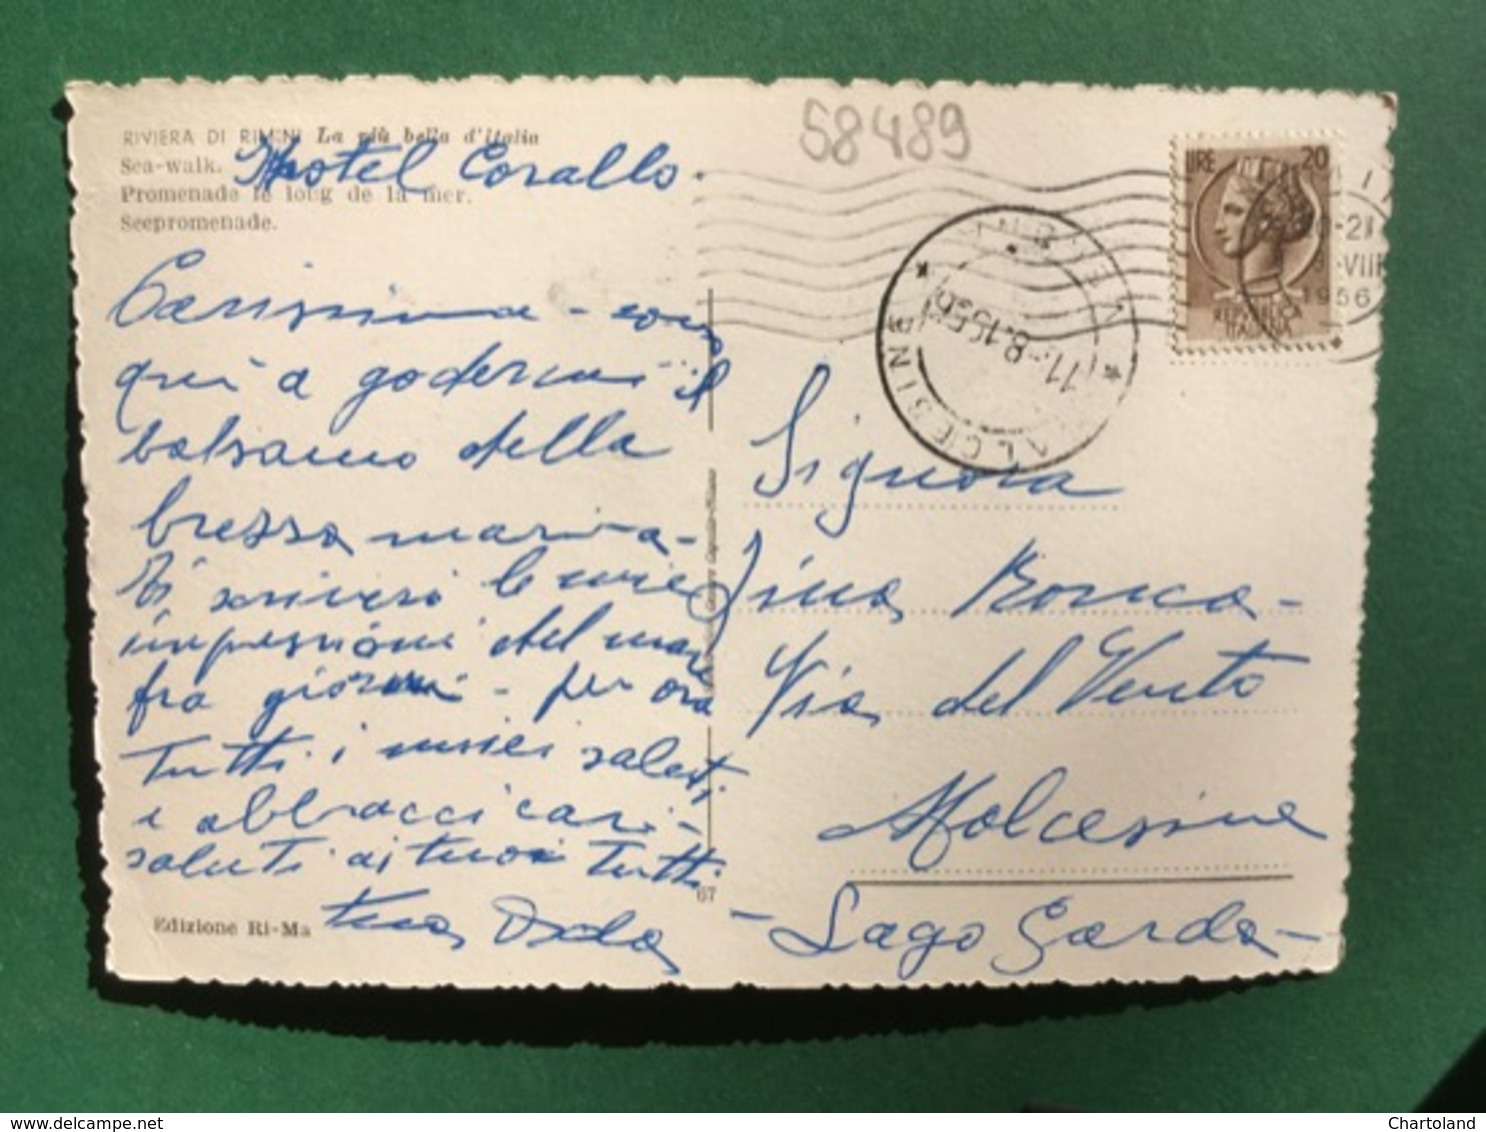 RIVIERA DI RIMINI La più bella d'italia
Sea-walk.
Hotel Corallo.
Promenade le long de la mer.
Seepromenade.
Carissima - sono
qui a godermi il
balsamo della
brezza marina -
Ti scriverò le mie
impressioni del mare
fra giorni - per ora
tutti i miei saluti
e abbracci cari -
saluti ai tuoi tutti
tua
Edizione Ri-Ma
67
58489
LIRE 20
REPVBBLICA
ITALIANA
-VIII
1956
MALCESINE
* VERONA *
11.-8.1956
Signora
Lina Ronca -
Via del Vento
Malcesine
- Lago Garda -
delcampe.net
Chartoland